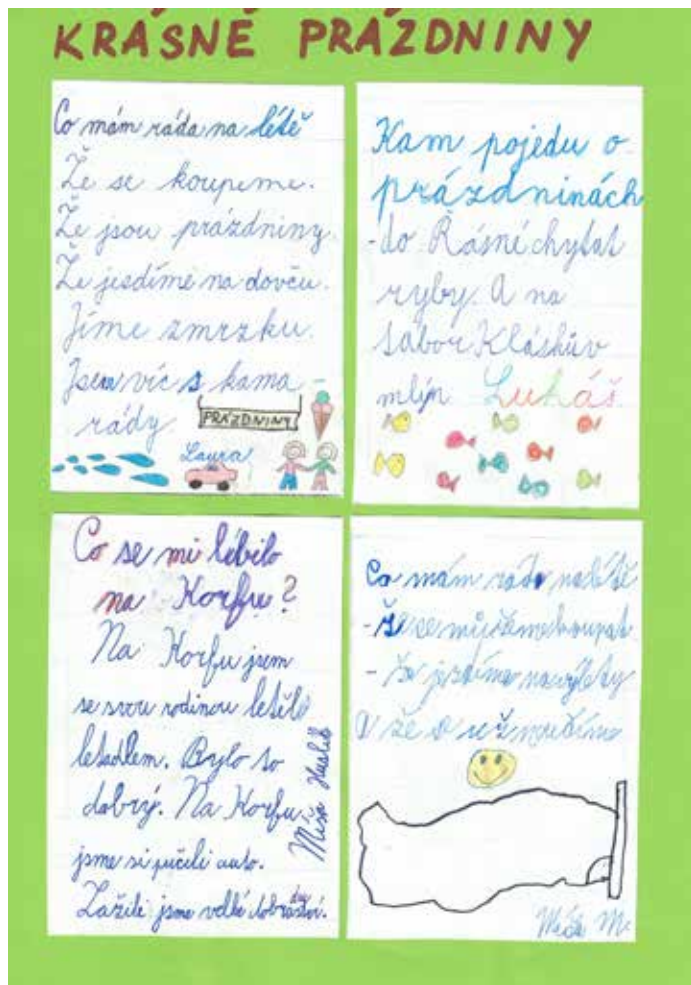 KRÁSNÉ PRÁZDNINY
Co mám ráda na létě
Že se koupeme.
Že jsou prázdniny.
Že jesdíme na dovču.
Jíme zmrzku.
Jsem víc s kama-
rády.
PRÁZDNINY
Laura
Kam pojedu o
prázdninách
-do Řásné chytat
ryby. A na
tábor Kláshův
mlýn Lukáš
Co se mi líbilo
na Korfu?
Na Korfu jsem
se svou rodinou letěli
letadlem. Bylo to
dobrý. Na Korfu
jsme si pučili auto.
Zažili jsme velké dobro
Míša
Co mám rád na létě
-že se můžeme koupat
- že jezdíme na výlety
A že se
Míša M.